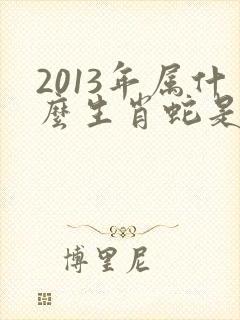 2013年属什
麼生肖蛇是
博里尼